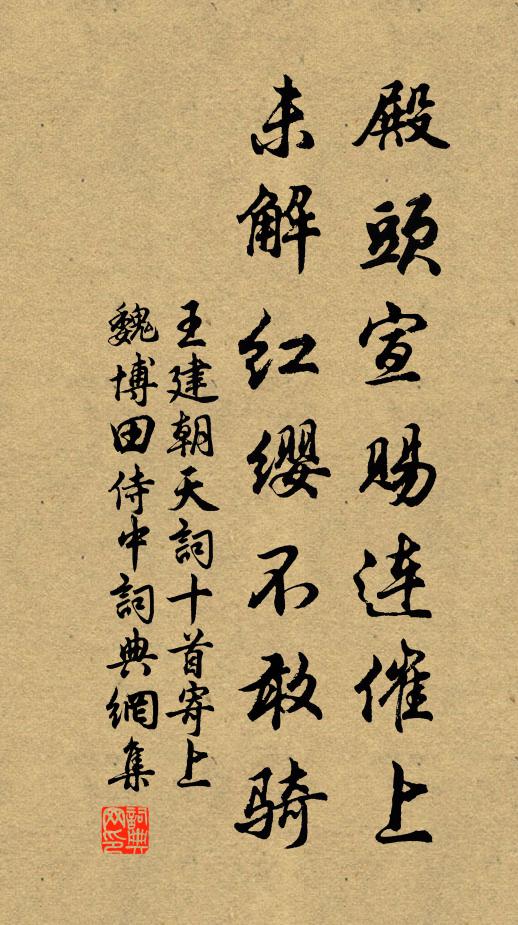 殿頭宣賜連催上
未解红缨不敢骑
王建朝天詞十首寄上
魏博田侍中詞典網集
詞典
网印